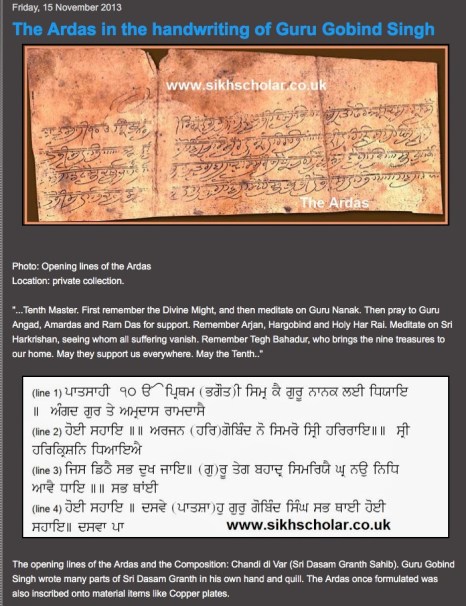 Friday, 15 November 2013
The Ardas in the handwriting of Guru Gobind Singh
www.sikhscholar.co.uk
The Ardas
Photo: Opening lines of the Ardas
Location: private collection.
"...Tenth Master. First remember the Divine Might, and then meditate on Guru Nanak. Then pray to Guru
Angad, Amardas and Ram Das for support. Remember Arjan, Hargobind and Holy Har Rai. Meditate on Sri
Harkrishan, seeing whom all suffering vanish. Remember Tegh Bahadur, who brings the nine treasures to
our home. May they support us everywhere. May the Tenth.."
(line 1) ਪਾਤਸਾਹੀ ੧੦ ੴ ਪ੍ਰਿਥਮ (ਭਗੌਤ)ੀ ਸਿਮ੍ਰ ਕੈ ਗੁਰੂ ਨਾਨਕ ਲਈ ਧਿਯਾਇ
॥ ਅੰਗਦ ਗੁਰ ਤੇ ਅਮ੍ਰਦਾਸ ਰਾਮਦਾਸੈ
(line 2) ਹੋਈ ਸਹਾਇ ॥॥ ਅਰਜਨ (ਹਰਿ)ਗੋਬਿੰਦ ਨੋ ਸਿਮਰੋ ਸ੍ਰੀ ਹਰਿਰਾਇ॥॥ ਸ੍ਰੀ
ਹਰਿਕ੍ਰਿਸ਼ਨਿ ਧਿਆਇਐ
(line 3) ਜਿਸ ਡਿਠੈ ਸਭ ਦੁਖ ਜਾਇ॥ (ਗੁ)ਰੂ ਤੇਗ ਬਹਾਦ੍ਰ ਸਿਮਰਿਯੈ ਘ੍ਰ ਨਉ ਨਿਧਿ
ਆਵੈ ਧਾਇ ॥॥ ਸਭ ਥਾਂਈ
(line 4) ਹੋਈ ਸਹਾਇ ॥ ਦਸਵੇ (ਪਾਤਸ਼ਾ)ਹੁ ਗੁਰੂ ਗੋਬਿੰਦ ਸਿੰਘ ਸਭ ਥਾਈ ਹੋਈ
ਸਹਾਇ॥ ਦਸਵਾ ਪਾ www.sikhscholar.co.uk
The opening lines of the Ardas and the Composition: Chandi di Var (Sri Dasam Granth Sahib). Guru Gobind
Singh wrote many parts of Sri Dasam Granth in his own hand and quill. The Ardas once formulated was
also inscribed onto material items like Copper plates.